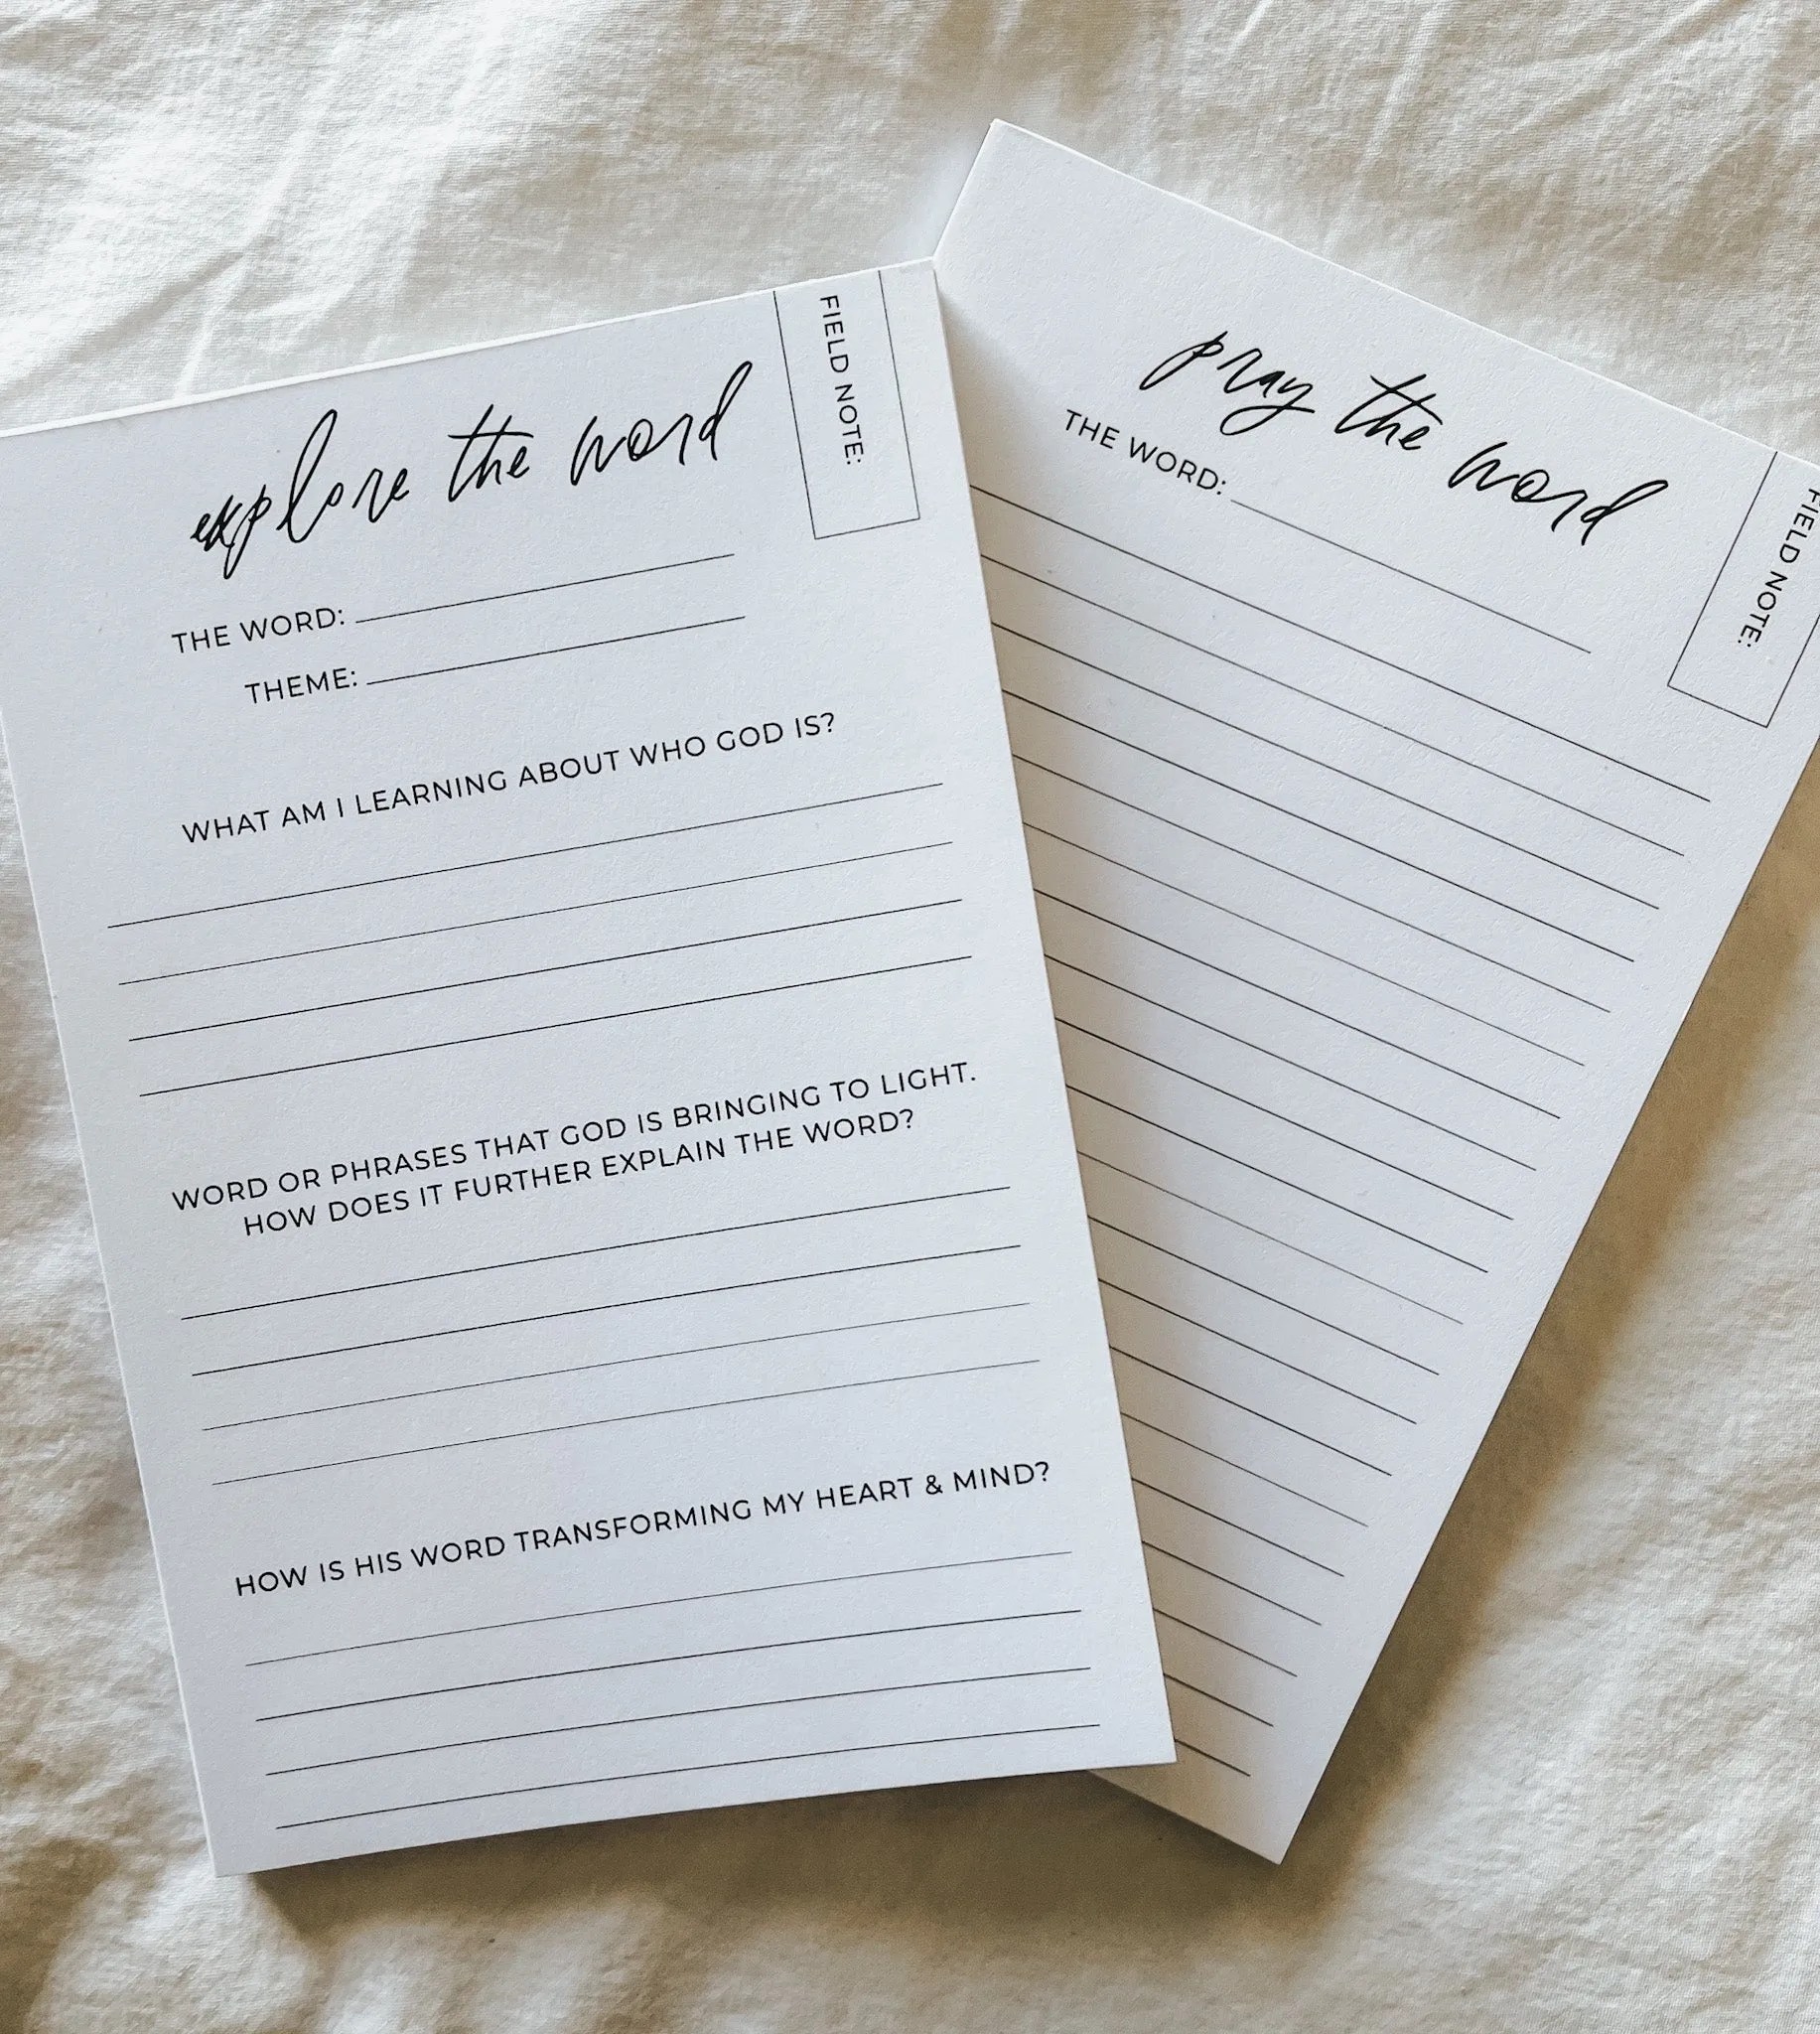 explore the word
FIELD NOTE:
THE WORD:
THEME:
WHAT AM I LEARNING ABOUT WHO GOD IS?
WORD OR PHRASES THAT GOD IS BRINGING TO LIGHT.
HOW DOES IT FURTHER EXPLAIN THE WORD?
HOW IS HIS WORD TRANSFORMING MY HEART & MIND?
pray the word
THE WORD:
FIELD NOTE: